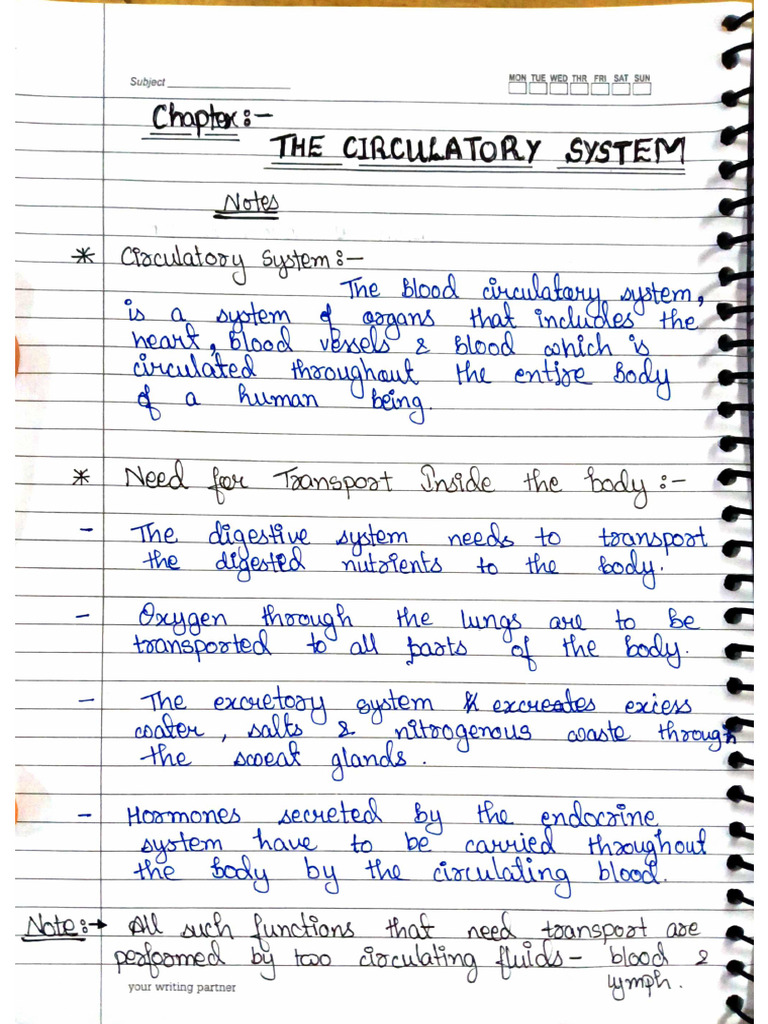 Subject
MON TUE WED THR FRI SAT SUN
Chapter:-
THE CIRCULATORY SYSTEM
Notes
* Circulatory System:-
The Blood circulatory system,
is a system of organs that includes the
heart, blood vessels & blood which is
circulated throughout the entire body
of a human being.
* Need for Transport Inside the body:-
- The digestive system needs to transport
the digested nutrients to the body.
- Oxygen through the lungs are to be
transported to all parts of the body.
- The excretory system excreates excess
water, salts & nitrogenous waste through
the sweat glands.
- Hormones secreted by the endocrine
system have to be carried throughout
the body by the circulating blood.
Note:→ All such functions that need transport are
performed by two circulating fluids- blood &
lymph.
your writing partner